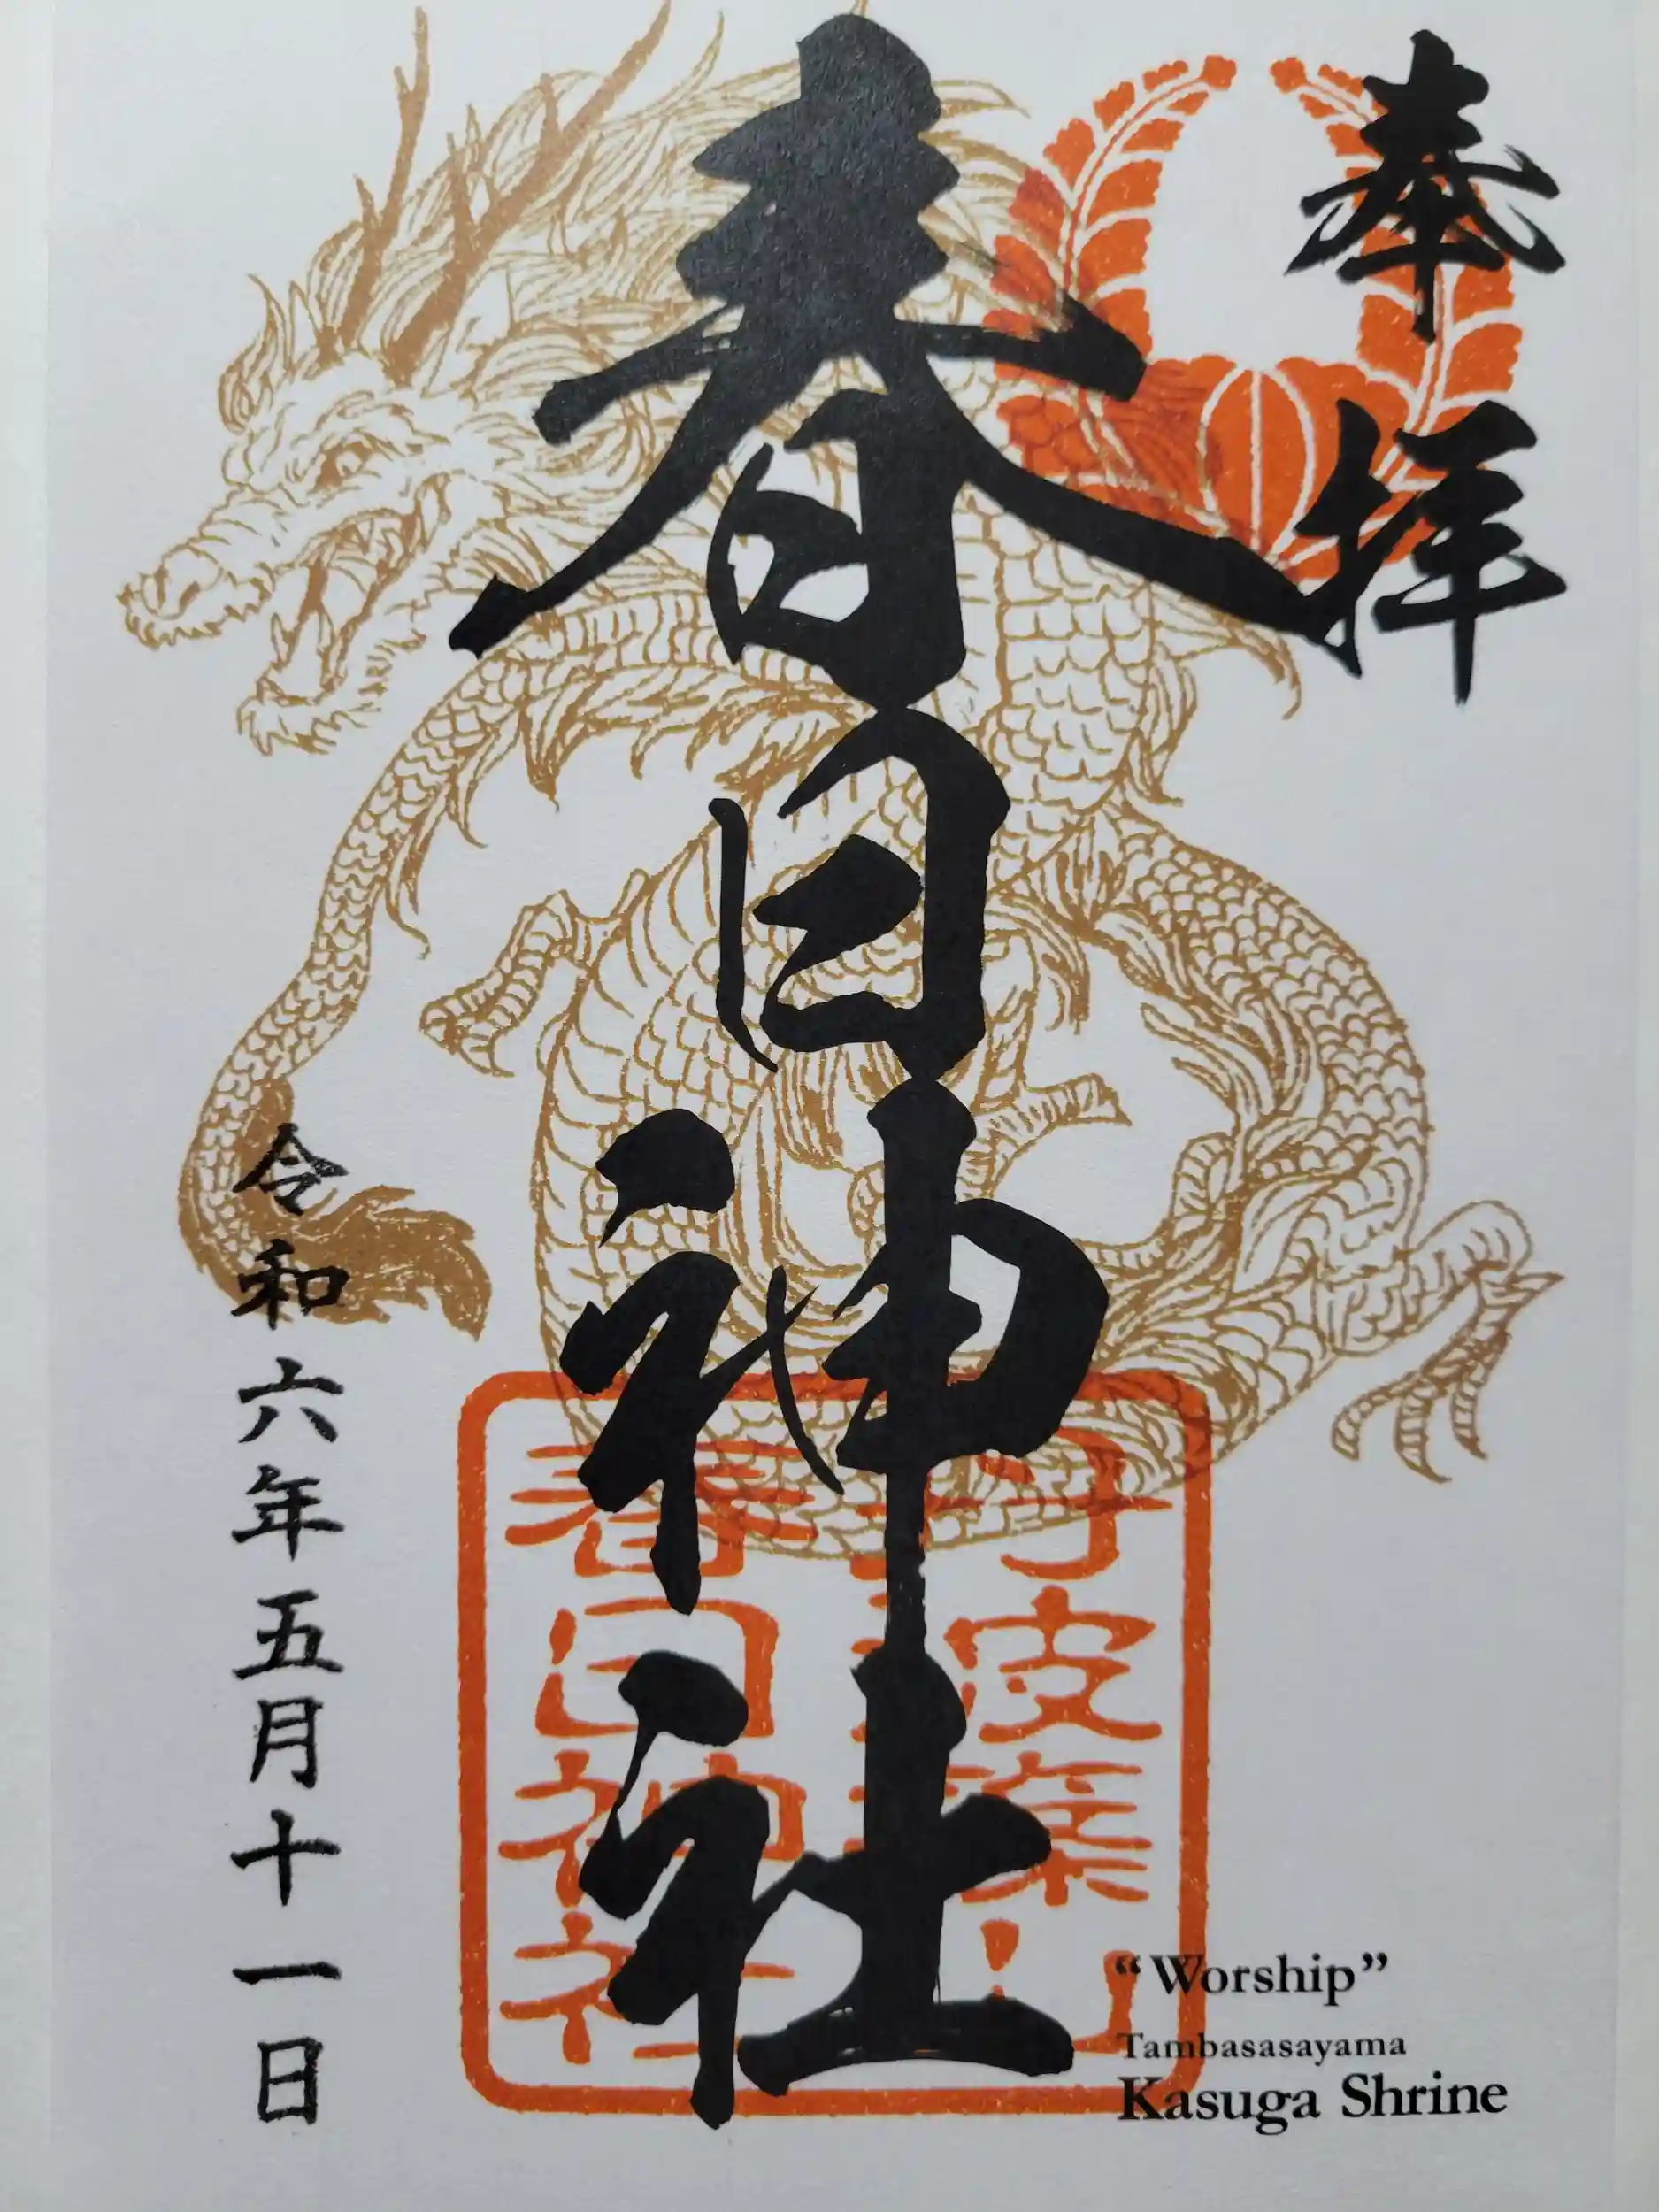 奉拝
春日神社
丹波篠山
春日神社
令和六年五月十一日
“Worship”
Tambasasayama
Kasuga Shrine